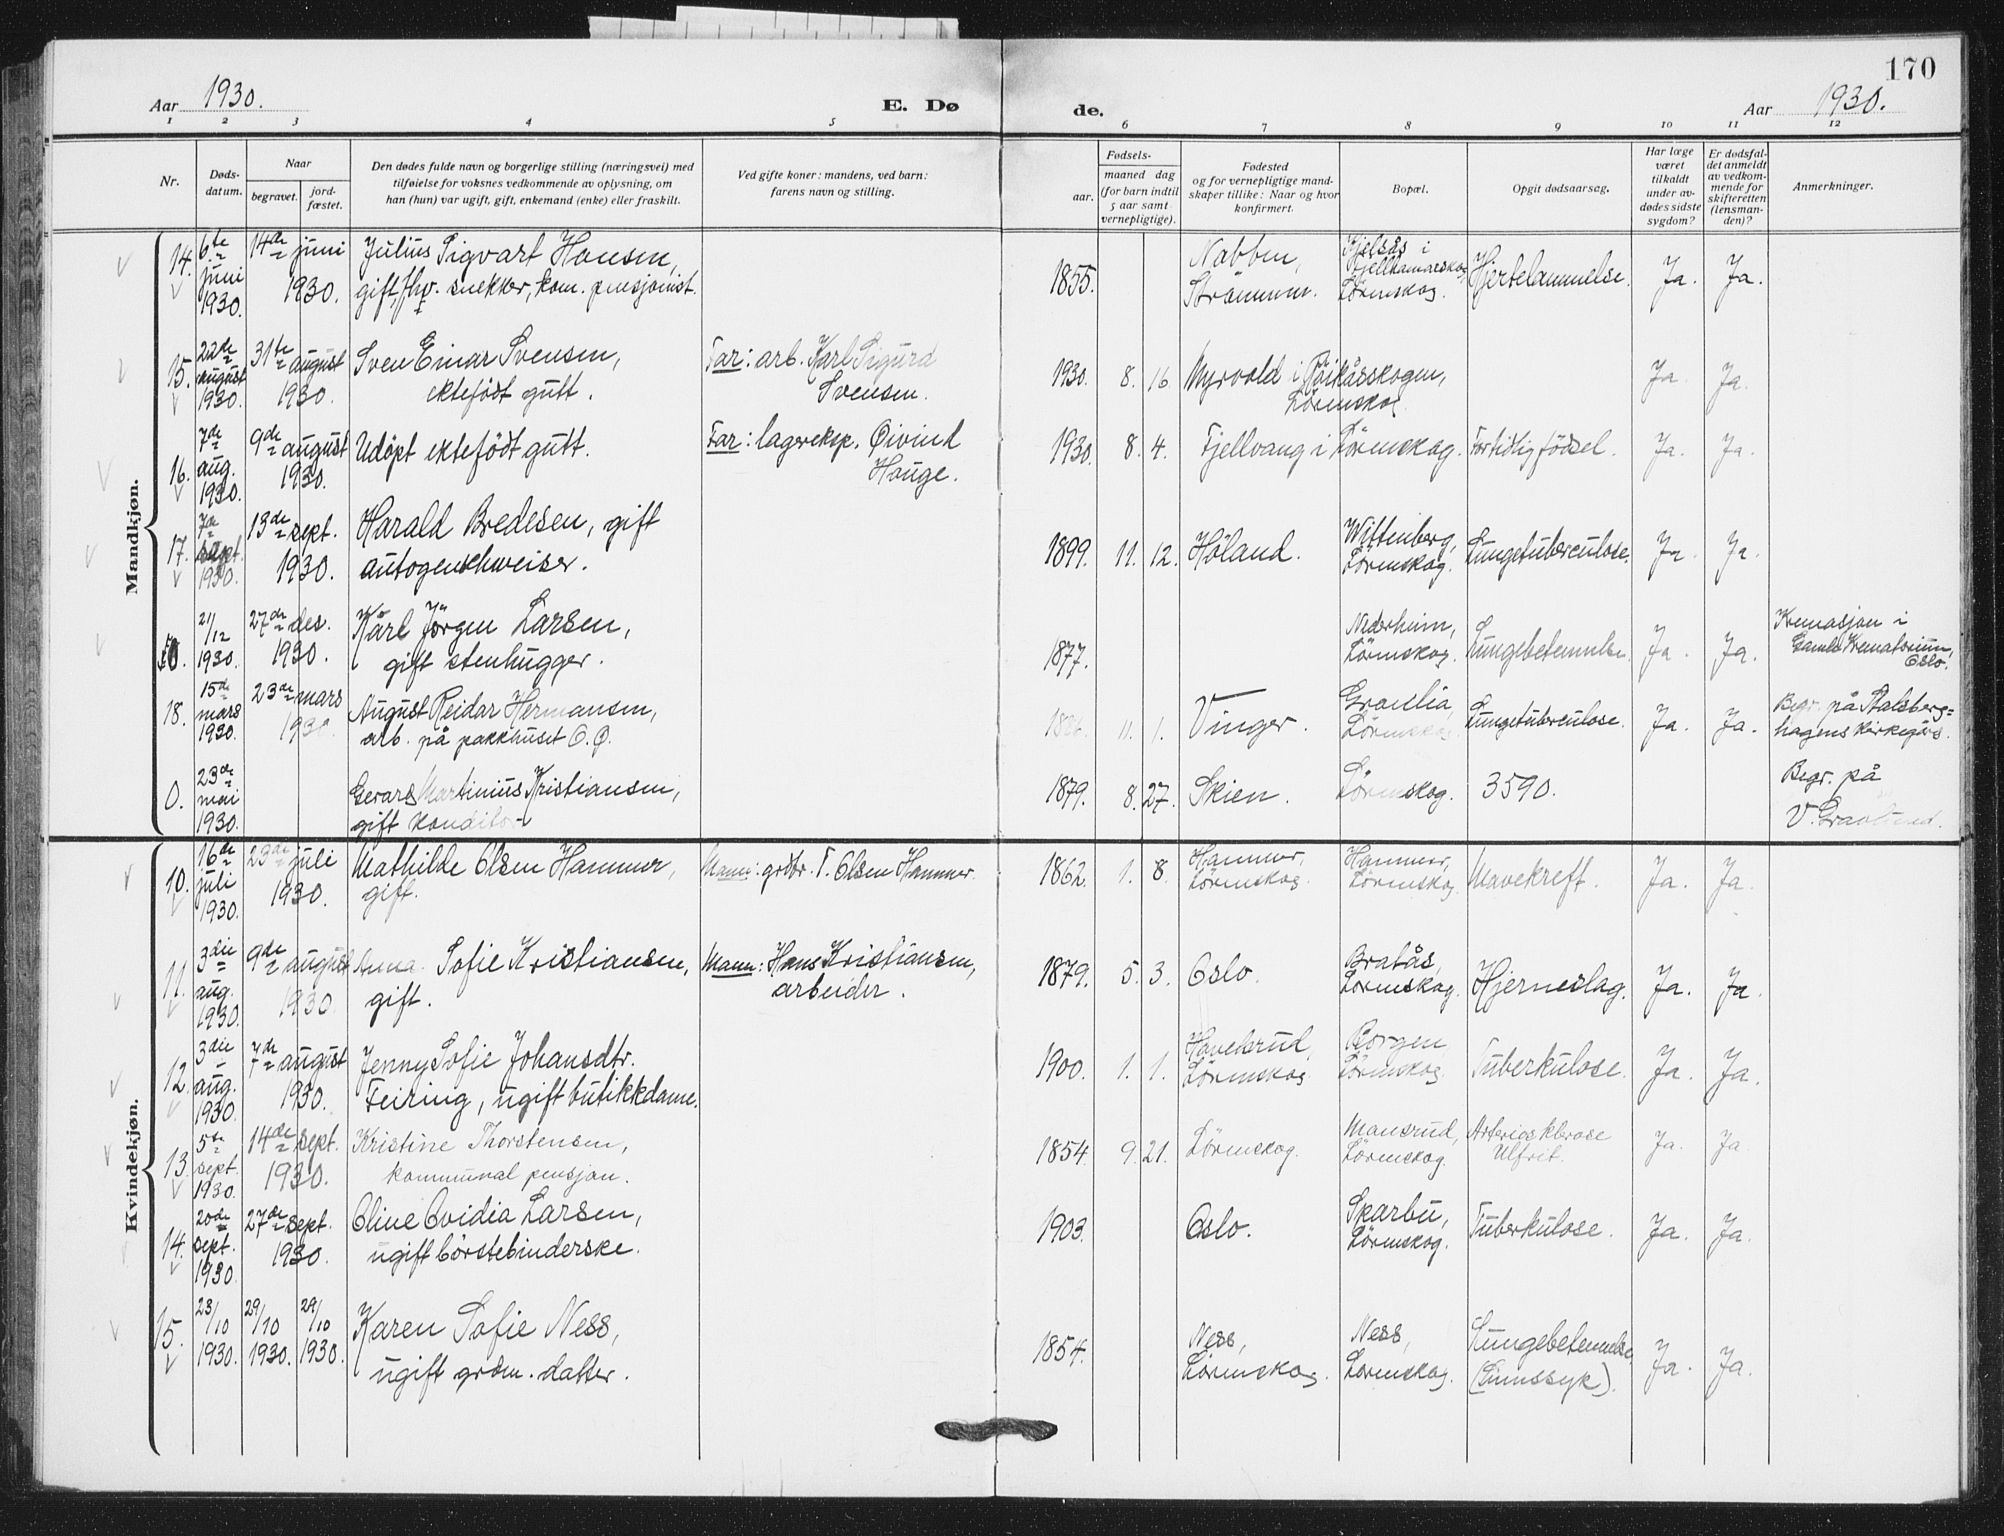 170
Aar 1930.
E. Dø
de.
Aar 1930.
1 2 3 4 5 6 7 8 9 10 11 12
Nr.
Døds-
datum.
Naar
begravet.
jord-
fæstet.
Den dødes fulde navn og borgerlige stilling (næringsvei) med
tilføielse for voksnes vedkommende av oplysning, om
han (hun) var ugift, gift, enkemand (enke) eller fraskilt.
Ved gifte koner: mandens, ved barn:
farens navn og stilling.
Fødsels-
aar.
maaned dag
(for barn indtil
5 aar samt
vernepligtige).
Fødested
og for vernepligtige mand-
skaper tillike: Naar og hvor
konfirmert.
Bopæl.
Opgit dødsaarsag.
Har læge
været
tilkaldt
under av-
dødes sidste
sygdom?
Er dødsfal-
det anmeldt
av vedkom-
mende for
skifteretten
(lensman-
den)?
Anmerkninger.
Mandkjøn.
14. 6te juni 1930. 14de juni 1930.
Julius Sigvart Hansen,
gift fhv. snekker, kom. pensjonist.
1855. Nabben, Strømmen. Kjelsås i Fjellhamarskog, Lørenskog. Hjertelammelse. Ja. Ja.
15. 22de august 1930. 31te august 1930.
Sven Einar Svensen,
ektefødt gutt.
Far: arb. Karl Sigurd
Svensen.
1930. 8. 16 Myrvold i Røikåsskogen, Lørenskog. Ja. Ja.
16. 7de aug. 1930. 9de august 1930.
Udøpt ektefødt gutt.
Far: lagereksp. Øivind
Hauge.
1930. 8. 4. Fjellvang i Lørenskog. For tidlig fødsel. Ja. Ja.
17. 7de sept. 1930. 13de sept. 1930.
Harald Bredesen, gift
autogenschweiser.
1899. 11. 12. Høland. Wittenberg, Lørenskog. Lungetuberculose. Ja. Ja.
0. 21/12 1930. 27de des. 1930.
Karl Jørgen Larsen,
gift stenhugger.
1877. Nederheim, Lørenskog. Lungebetennelse. Ja. Ja. Kremasjon i
Gamle Krematorium,
Oslo.
18. 15de mars 1930. 23de mars 1930.
August Reidar Hermansen,
arb. på pakkhuset O. Ø.
11. 1. Vinger. Granlia, Lørenskog. Lungetuberculose. Ja. Ja. Begr. på Stalsberg=
hagens kirkegårs.
0. 23de mai 1930.
Gerard Martinius Kristiansen,
gift konditor
1879. 8. 27. Skien. Lørenskog. 3590. Begr. på
V. Gravlund.
Kvindekjøn.
10. 16de juli 1930. 23de juli 1930.
Mathilde Olsen Hammer,
gift.
Mann: grdbr. T. Olsen Hammer.
1862. 1. 8. Hammer, Lørenskog. Hammer, Lørenskog. Mavekreft. Ja. Ja.
11. 3die aug. 1930. 9de august 1930.
Anna Sofie Kristiansen,
gift.
Mann: Hans Kristiansen,
arbeider.
1879. 5. 3. Oslo. Bratås, Lørenskog. Hjerneslag. Ja. Ja.
12. 3die aug. 1930. 7de august 1930.
Jenny Sofie Johansdtr.
Feiring, ugift butikkdame.
1900. 1. 1. Haneborud, Lørenskog. Borgen, Lørenskog. Tuberkulose. Ja. Ja.
13. 5te sept. 1930. 14de sept. 1930.
Kristine Thorstensen,
kommunal pensjon.
1854. 9. 21. Lørenskog. Mansrud, Lørenskog. Arteriosklerose
Ja. Ja.
14. 20de sept. 1930. 27de sept. 1930.
Oline Ovidia Larsen,
ugift børstebinderske.
1903. Oslo. Skarbu, Lørenskog. Tuberkulose. Ja. Ja.
15. 23/10 1930. 29/10 1930. 29/10 1930.
Karen Sofie Ness,
ugift grdm. datter.
1854. Ness, Lørenskog. Ness, Lørenskog. Lungebetennelse
(Sinnssyk). Ja. Ja.